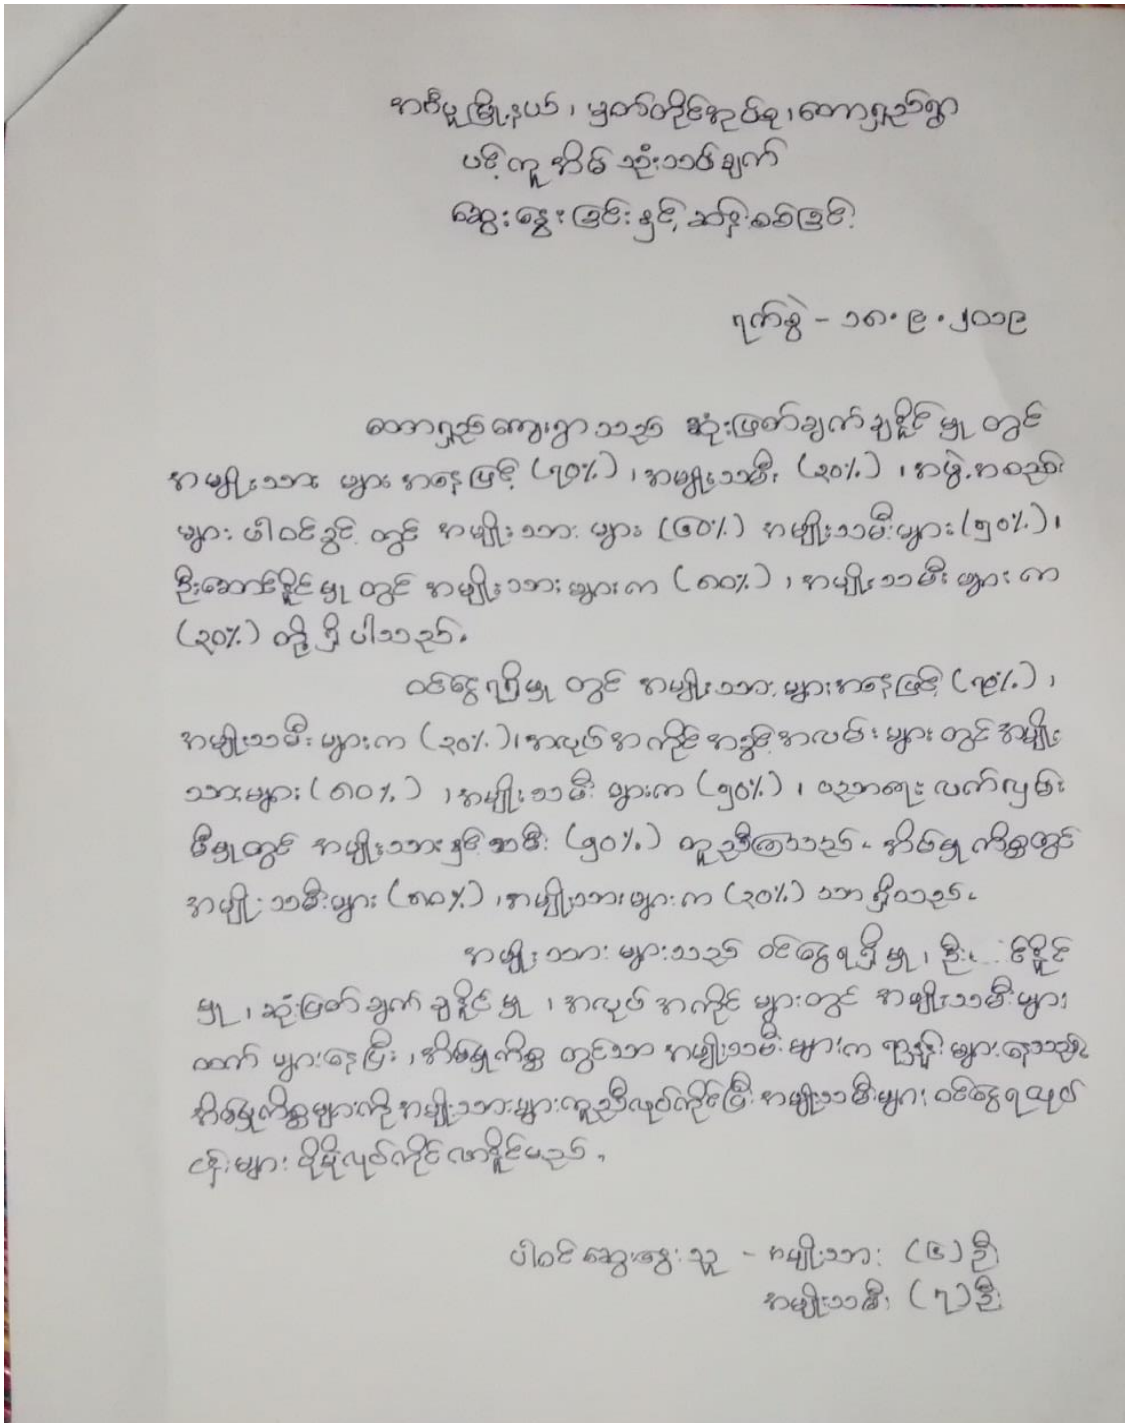 အင်္ဂပူမြို့နယ်၊ မှတ်တိုင်အုပ်စု၊တောရှည်ရွာ
ပင့်ကူအိမ် သုံးသပ်ချက်
ဆွေးနွေးခြင်းနှင့် ဆန်းစစ်ခြင်း
ရက်စွဲ - ၁၈.၉.၂၀၁၉
တောရှည်ကျေးရွာသည် ဆုံးဖြတ်ချက်ချနိုင်မှု တွင်
အမျိုးသား များအနေဖြင့် (၇၀%) ၊အမျိုးသမီး (၃၀%) ၊အဖွဲ့အစည်း
များ ပါဝင်ခွင့် တွင် အမျိုးသား များ (၆၀%) အမျိုးသမီးများ (၅၀%)၊
ဦးဆောင်နိုင်မှု တွင် အမျိုးသားများက (၈၀%) ၊ အမျိုးသမီး များက
(၃၀%) တို့ရှိပါသည်။
ဝင်ငွေရရှိမှု တွင် အမျိုးသားများအနေဖြင့် (၇၀%) ၊
အမျိုးသမီးများက (၃၀%)၊အလုပ်အကိုင်အခွင့်အလမ်းများတွင်အမျိုး
သားများ (၈၀%) ၊အမျိုးသမီး များက (၅၀%) ၊ ပညာရေး လက်လှမ်း
မီမှုတွင် အမျိုးသားနှင့် သမီး (၅၀%) တူညီကြသည်။ အိမ်မှုကိစ္စတွင်
အမျိုးသမီးများ (၈၀%) ၊အမျိုးသားများက (၃၀%) သာရှိသည်။
အမျိုးသား များသည် ဝင်ငွေရရှိမှု ၊ နိုင်
မှု ၊ ဆုံးဖြတ်ချက် ချနိုင်မှု ၊ အလုပ် အကိုင် များတွင် အမျိုးသမီးများ
ထက် များနေပြီး ၊အိမ်မှုကိစ္စ တွင်သာ အမျိုးသမီးများက ရာနှုန်းများနေသည်။
အိမ်မှုကိစ္စများကို အမျိုးသားများကူညီလုပ်ကိုင်ပြီးအမျိုးသမီးများ ဝင်ငွေရလုပ်
ငန်းများ ပိုမိုလုပ်ကိုင်လာနိုင်မည်။
ပါဝင်ဆွေးနွေးသူ - အမျိုးသား (၆) ဦး
အမျိုးသမီး (၇) ဦး